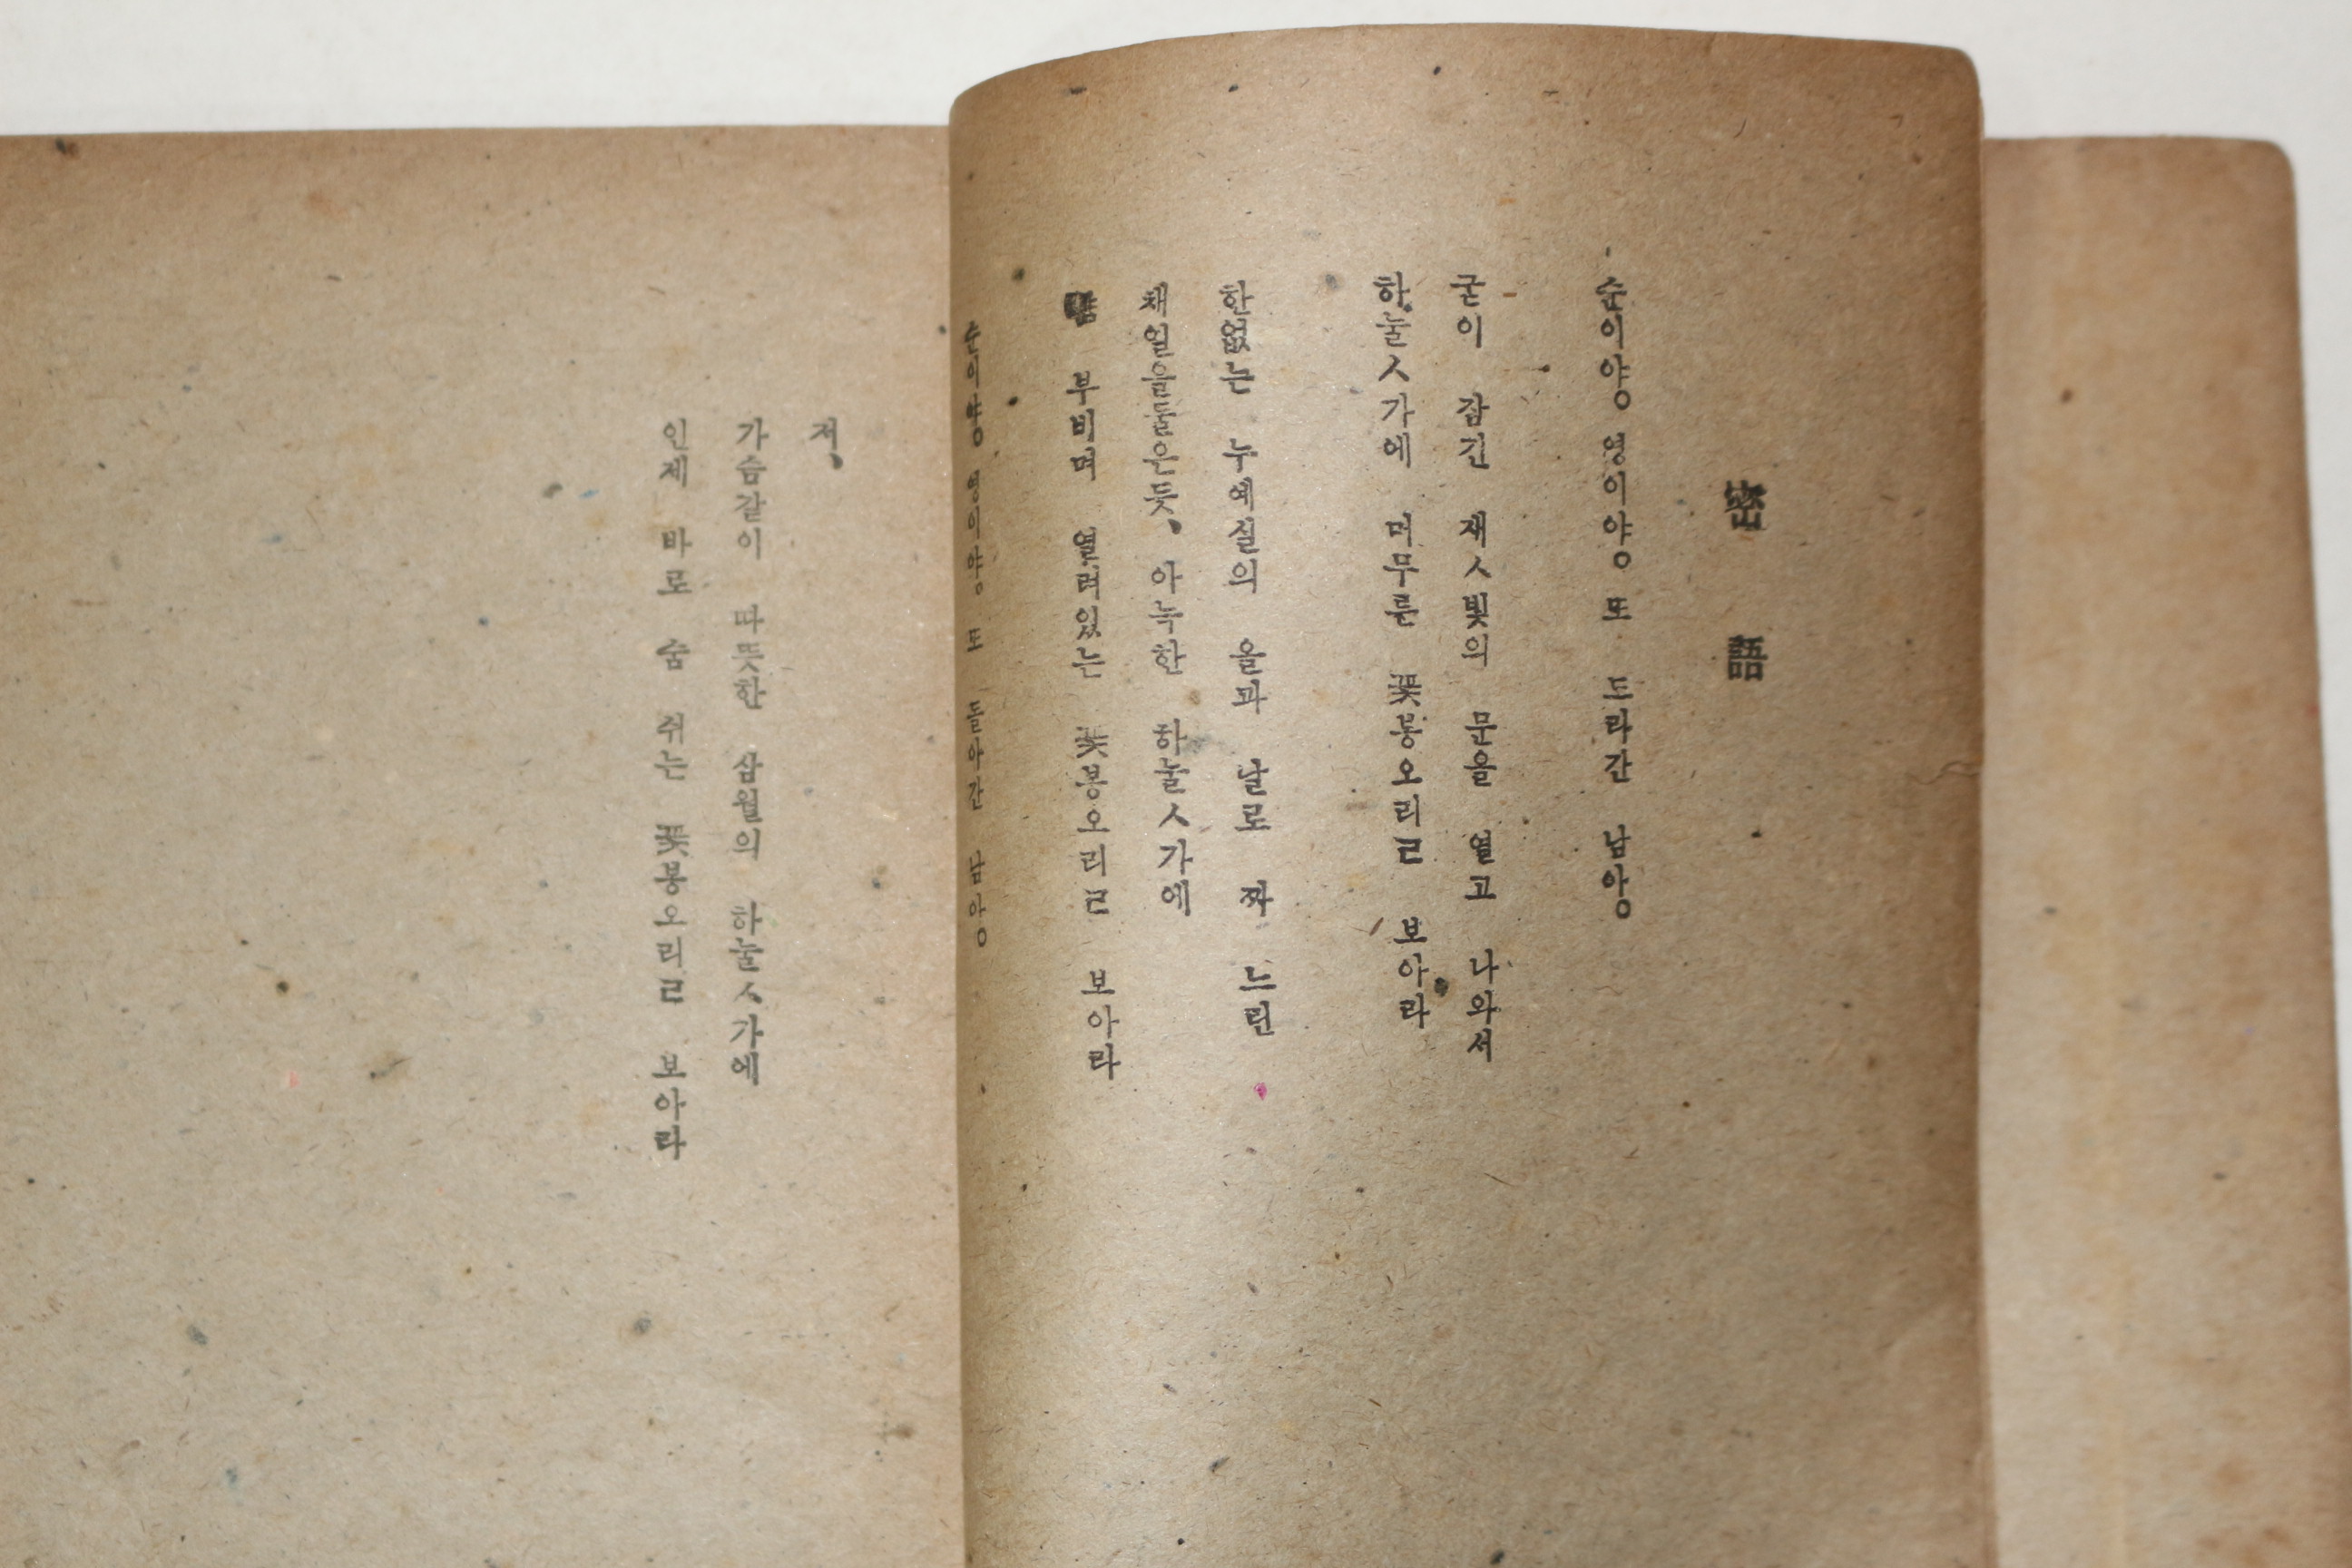 密語
순이야。영이야。또 도라간 남아。
굳이 잠긴 재ㅅ빛의 문을 열고 나와서
하눌ㅅ가에 머무른 꽃봉오리ㄹ 보아라
한없는 누예실의 올과 날로 짜 느린
채일을둘은듯、 아늑한 하눌ㅅ가에
뺨 부비며 열려있는 꽃봉오리ㄹ 보아라
순이야。영이야。또 돌아간 남아。
저、
가슴같이 따뜻한 삼월의 하눌ㅅ가에
인제 바로 숨 쉬는 꽃봉오리ㄹ 보아라